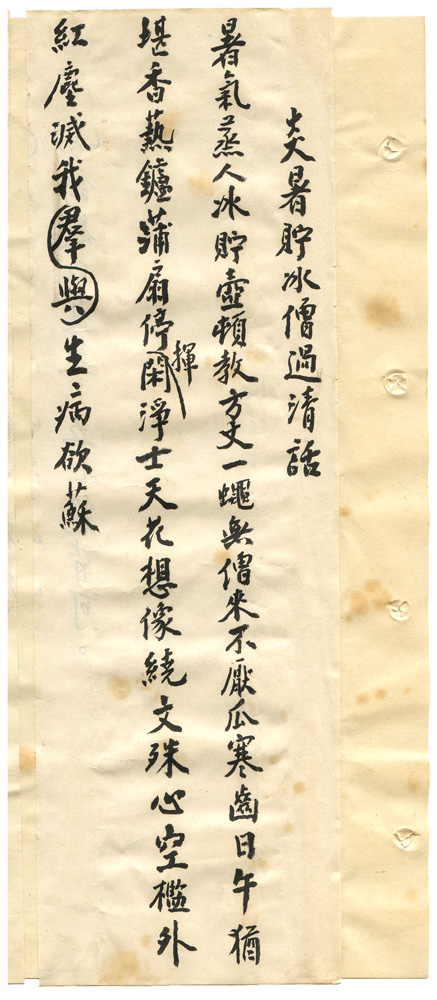 炎暑貯冰僧過清話
暑氣蒸人冰貯壺頓教方丈一蠅無僧來不厭瓜寒齒日午猶
堪香爇鑪蒲扇停閑揮淨士天花想像繞文殊心空檻外
紅塵滅我羣與生病欲蘇